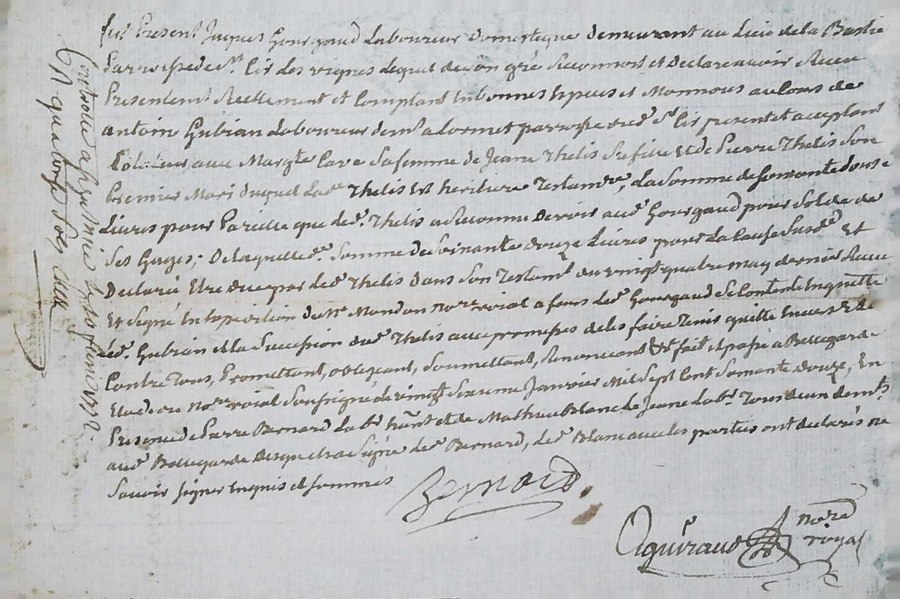 fut Present Jaques Gourgaud Laboureur Domestique demeurant au Lieu de la Bastie
Parroisse de St Cir Les vignes Lequel de son gré Reconnois et Declare avoir Receu
Presentemt Reellement et Comptant En bonnes Especes et Monnoies au Cours de
antoine Gubian Laboureur demt a parroisse dud St Cir present et aceptant
a Marguite Lave sa femme de Jeane Thelis sa fille et de Pierre Thelis Son
Premier Mari duquel Lade Thelis Est heritiere Testamre, La Somme de Soixante douse
Livres pour Pareille que led. Thelis a Reconnu devoir aud Gourgaud pour Solde de
Ses Gages; De laquelle de Somme de Soixante Douze Livres pour La Cause Susde Et
Declarée Etre deue par led Thelis dans Son Testamt du vingt quatre may dernier Receu
Et Signé En Expedition de Me Mandon Nore roial a fons led Gourgaud Se Contente En quitte
led Gubian et La Succession dud Thelis avec promesse de les faire Tenir quitte Envers Et
Contre Tous, Promettant, obligeant, Soumettant, Renonceant &c fait et passé a Bellegarde
Etude du Nore roial Soussigné Le vingt Sixieme Janvier Mil Sept Cent Soixante douze, En
Presence de Pierre Bernard Labr et de Mathieu Blanc de Jeane Labr Tous deux demts
aud Bellegarde Desquels a Signé led Bernard, led Blanc avec les parties ont declaré ne
Savoir signer Enquis et sommés
Bernard
Aguiraud nore royal
Controlé a
R quatorze sols